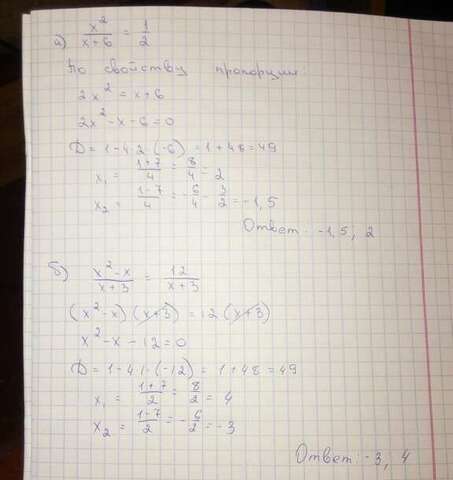 а) x²/(x+6) = 1/2
По свойству пропорции
2x² = x+6
2x² - x - 6 = 0
D = 1 - 4·2·(-6) = 1 + 48 = 49
x₁ = (1+7)/4 = 8/4 = 2
x₂ = (1-7)/4 = -6/4 = -3/2 = -1,5
Ответ: -1,5; 2
б) (x²-x)/(x+3) = 12/(x+3)
(x²-x)(x+3) = 12(x+3)
x² - x - 12 = 0
D = 1 - 4·1·(-12) = 1 + 48 = 49
x₁ = (1+7)/2 = 8/2 = 4
x₂ = (1-7)/2 = -6/2 = -3
Ответ: -3, 4